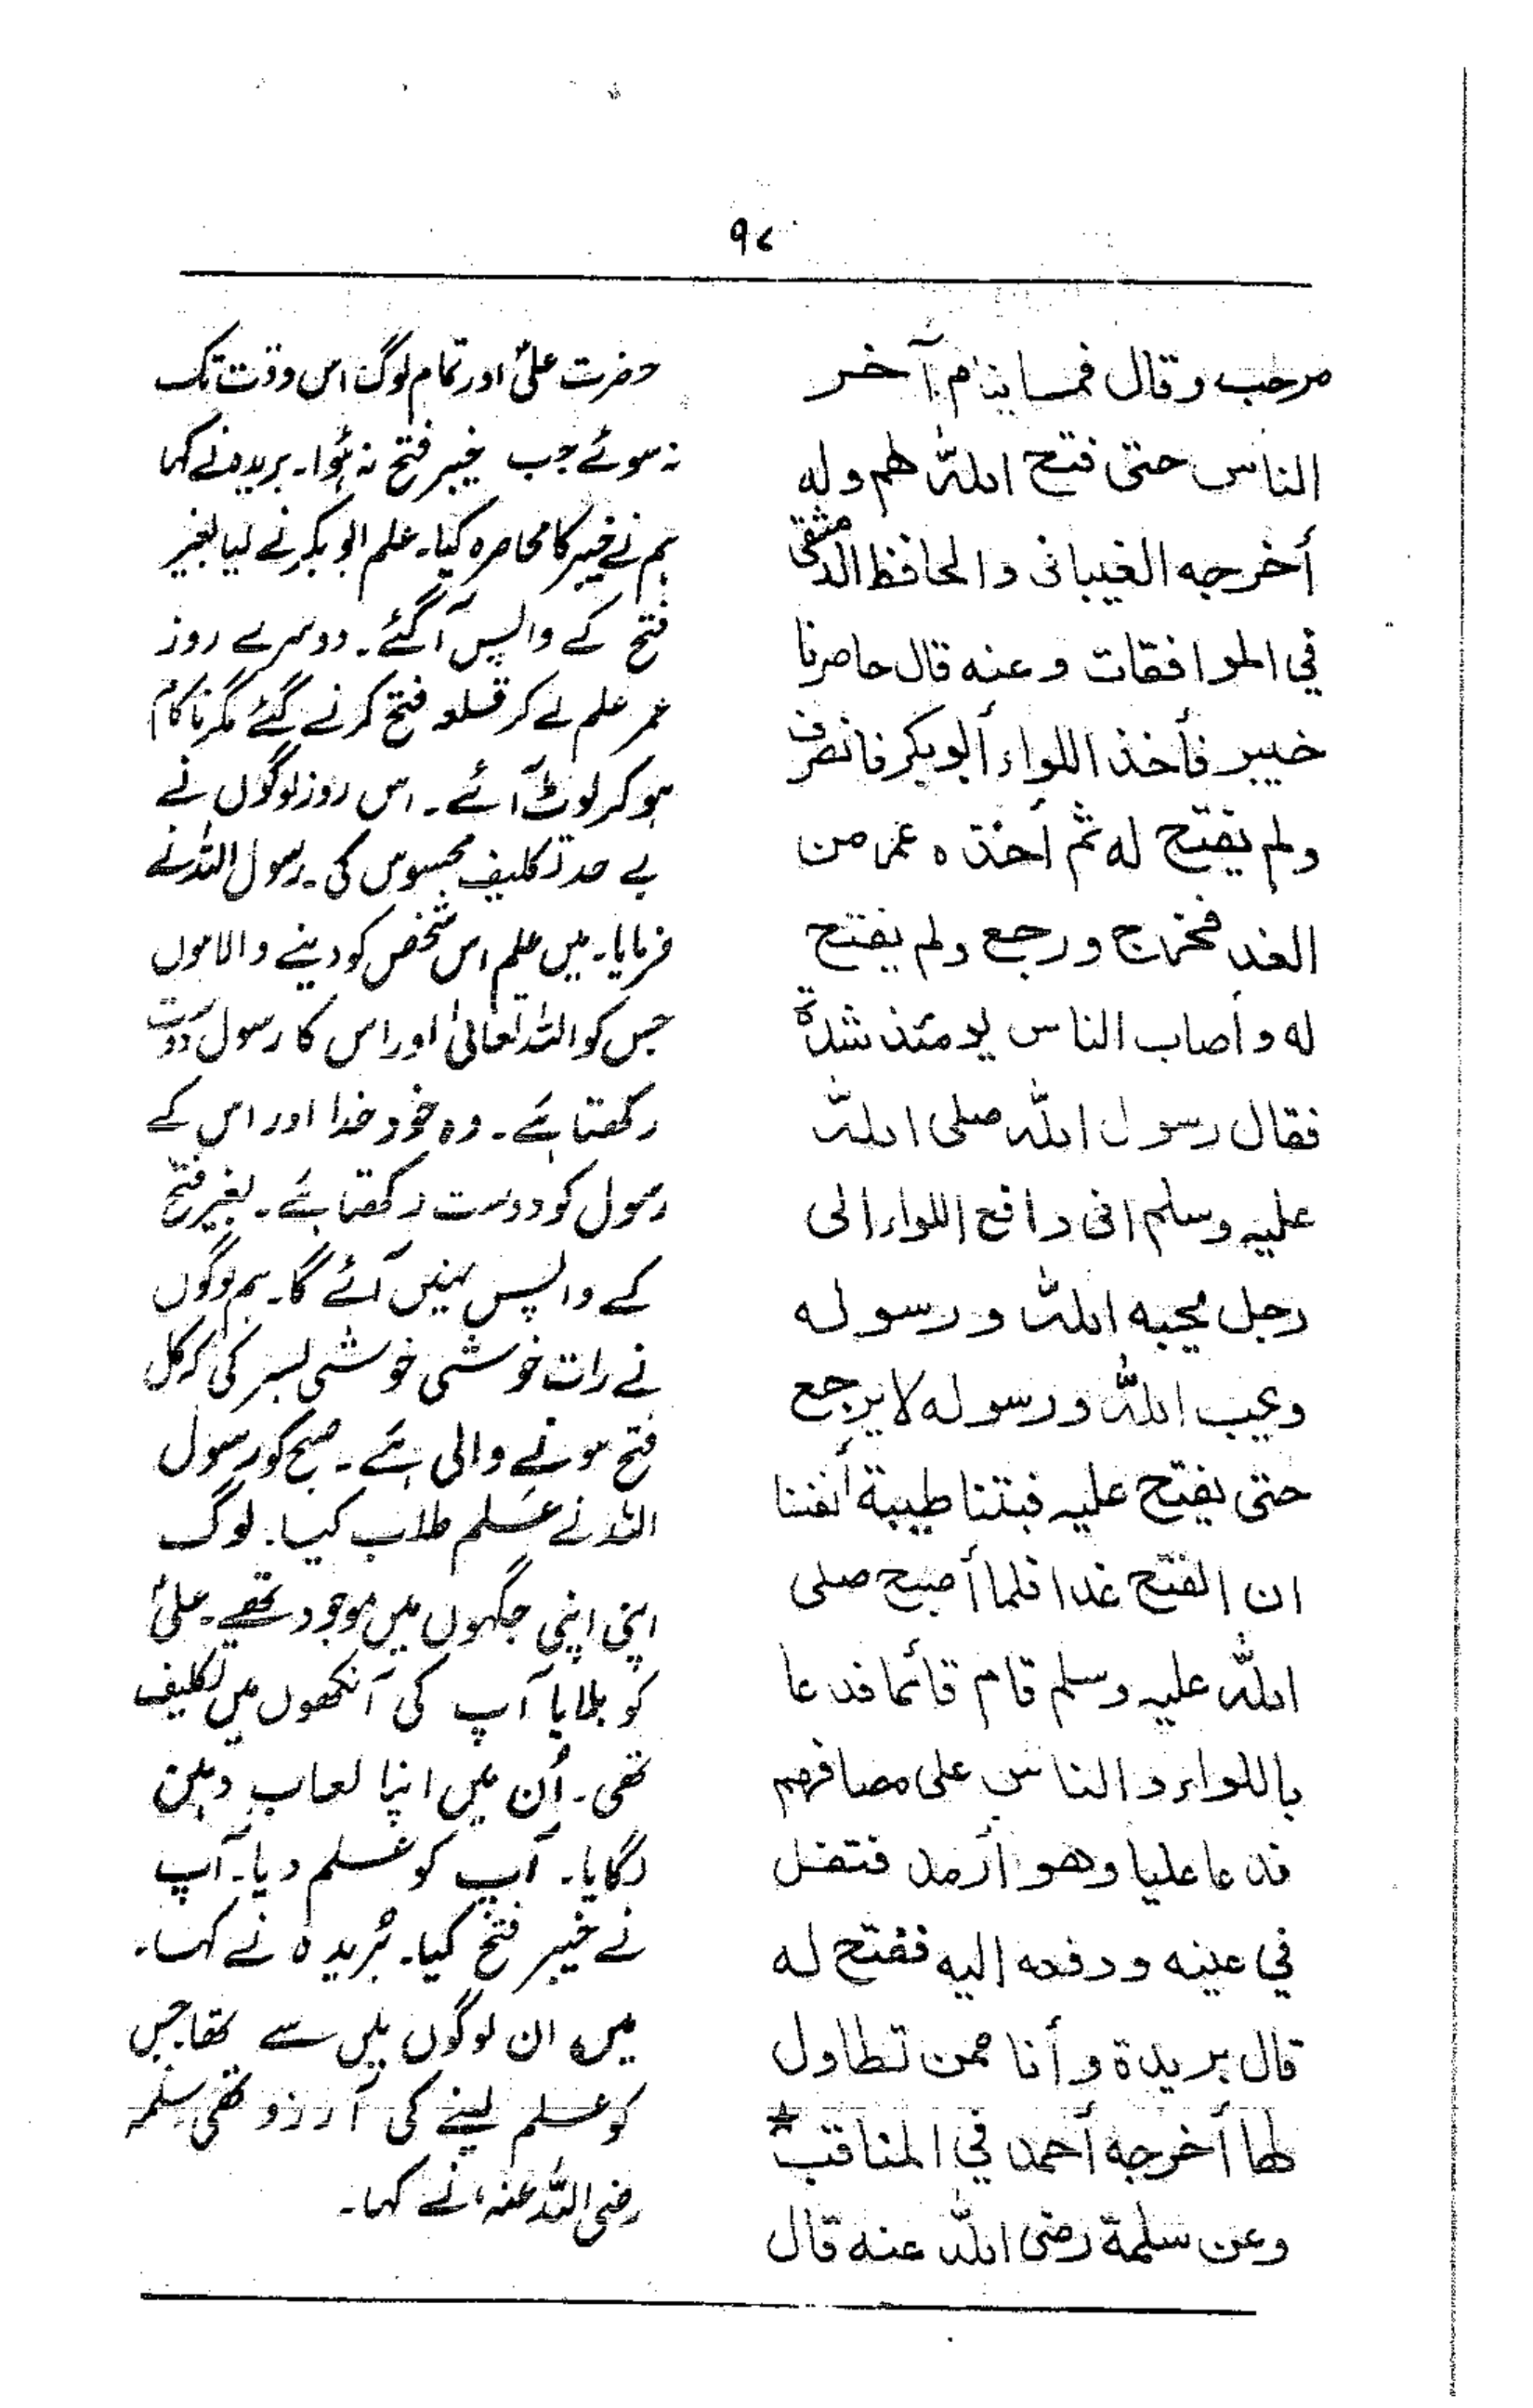 ۹۷
مرحب وقال فما ينام آخر
الناس حتى فتح الله لهم وله
أخرجه الغيبانى والحافظ الدمشقى
في الموافقات وعنه قال حاصرنا
خيبر فأخذ اللواء أبو بكر فانصرف
ولم يفتح له ثم أخذه عمر من
الغد فخرج ورجع ولم يفتح
له وأصاب الناس يومئذ شدة
فقال رسول الله صلى الله
عليه وسلم انى دافع اللواء الى
رجل يحبه الله ورسوله
ويحب الله ورسوله لا يرجع
حتى يفتح عليه فبتنا طيبة أنفسنا
ان الفتح غدا فلما أصبح صلى
الله عليه وسلم قام قائما فدعا
باللواء والناس على مصافهم
فدعا عليا وهو أرمد فتفل
في عينه ودفعه إليه ففتح له
قال بريدة وأنا ممن تطاول
لها أخرجه أحمد في المناقب *
وعن سلمة رضى الله عنه قال
حضرت علیؑ اور تمام لوگ اس وقت تک
نہ سوئے جب خیبر فتح نہ ہُوا۔ بریدہ نے کہا
ہم نے خیبر کا محاصرہ کیا۔ علم ابو بکر نے لیا بغیر
فتح کے واپس آگئے۔ دوسرے روز
عمر علم لے کر قلعہ فتح کرنے گئے مگر ناکام
ہو کر لوٹ آئے۔ اس روز لوگوں نے
بے حد تکلیف محسوس کی۔ رسول اللہ نے
فرمایا۔ میں علم اس شخص کو دینے والا ہوں
جس کو اللہ تعالیٰ اور اس کا رسول دوست
رکھتا ہے۔ وہ خود خدا اور اس کے
رسول کو دوست رکھتا ہے۔ بغیر فتح
کے واپس نہیں آئے گا۔ ہم لوگوں
نے رات خوشی خوشی بسر کی کہ کل
فتح ہونے والی ہے۔ صبح کو رسول
اللہ نے عَلم طلاب کیا۔ لوگ
اپنی اپنی جگہوں میں موجود تھے۔ علیؑ
کو بلایا آپ کی آنکھوں میں تکلیف
تھی۔ اُن میں اپنا لعاب دہن
لگایا۔ آپ کو عَلم دیا۔ آپ
نے خیبر فتح کیا۔ بُریدہ نے کہا۔
میں ان لوگوں میں سے تھا جس
کو علم لینے کی آرزو تھی سلمہ
رضی اللہ عنہ، نے کہا۔